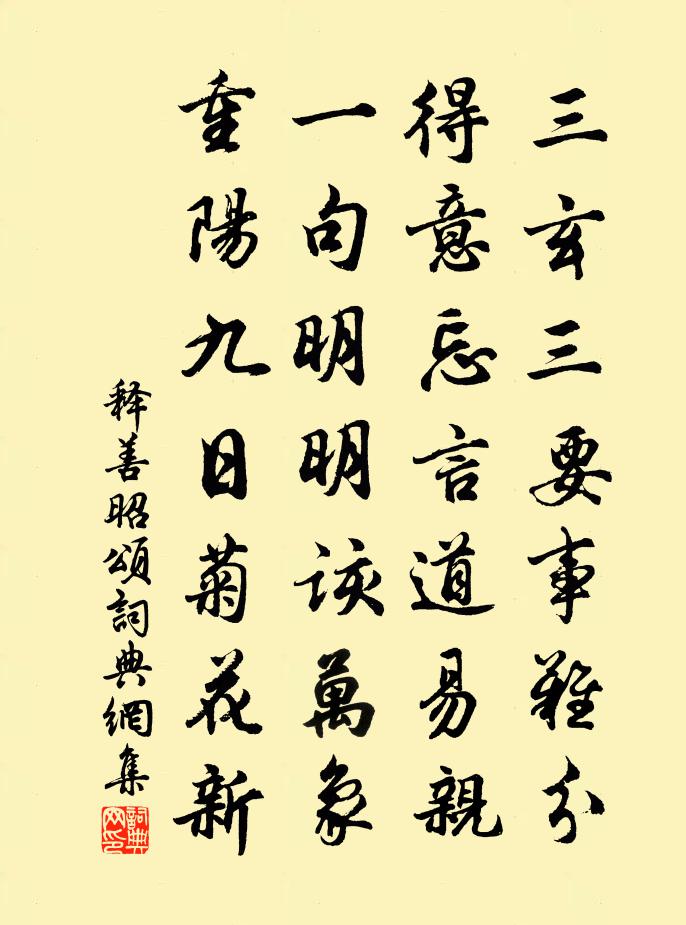 三玄三要事難分
得意忘言道易親
一句明明該萬象
重陽九日菊花新
释善昭頌詞典網集
詞典网印